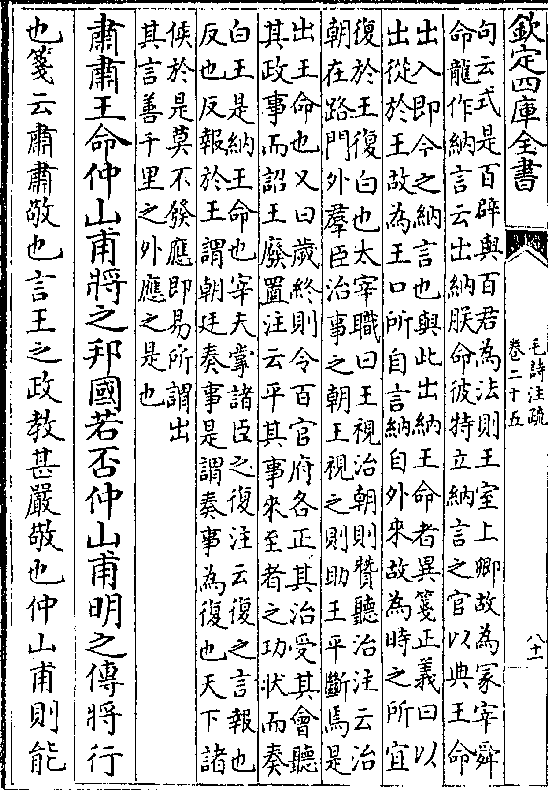 欽定四庫全書
毛詩注疏
卷二十五
八十一
句云式是百辟與百君為法則王室上卿故為冢宰舜
命龍作納言云出納朕命彼特立納言之官以典王命
出入即今之納言也與此出納王命者異箋正義曰以
出從於王故為王口所自言納自外來故為時之所宜
復於王復白也太宰職曰王視治朝則贊聽治注云治
朝在路門外羣臣治事之朝王視之則助王平斷焉是
出王命也又曰歲終則令百官府各正其治受其會聽
其政事而詔王廢置注云平其事來至者之功狀而奏
白王是納王命也宰夫掌諸臣之復注云復之言報也
反也反報於王謂朝廷奏事是謂奏事為復也天下諸
侯於是莫不發應即易所謂出
其言善千里之外應之是也
肅肅王命仲山甫將之邦國若否仲山甫明之傳將行
也箋云肅肅敬也言王之政教甚嚴敬也仲山甫則能